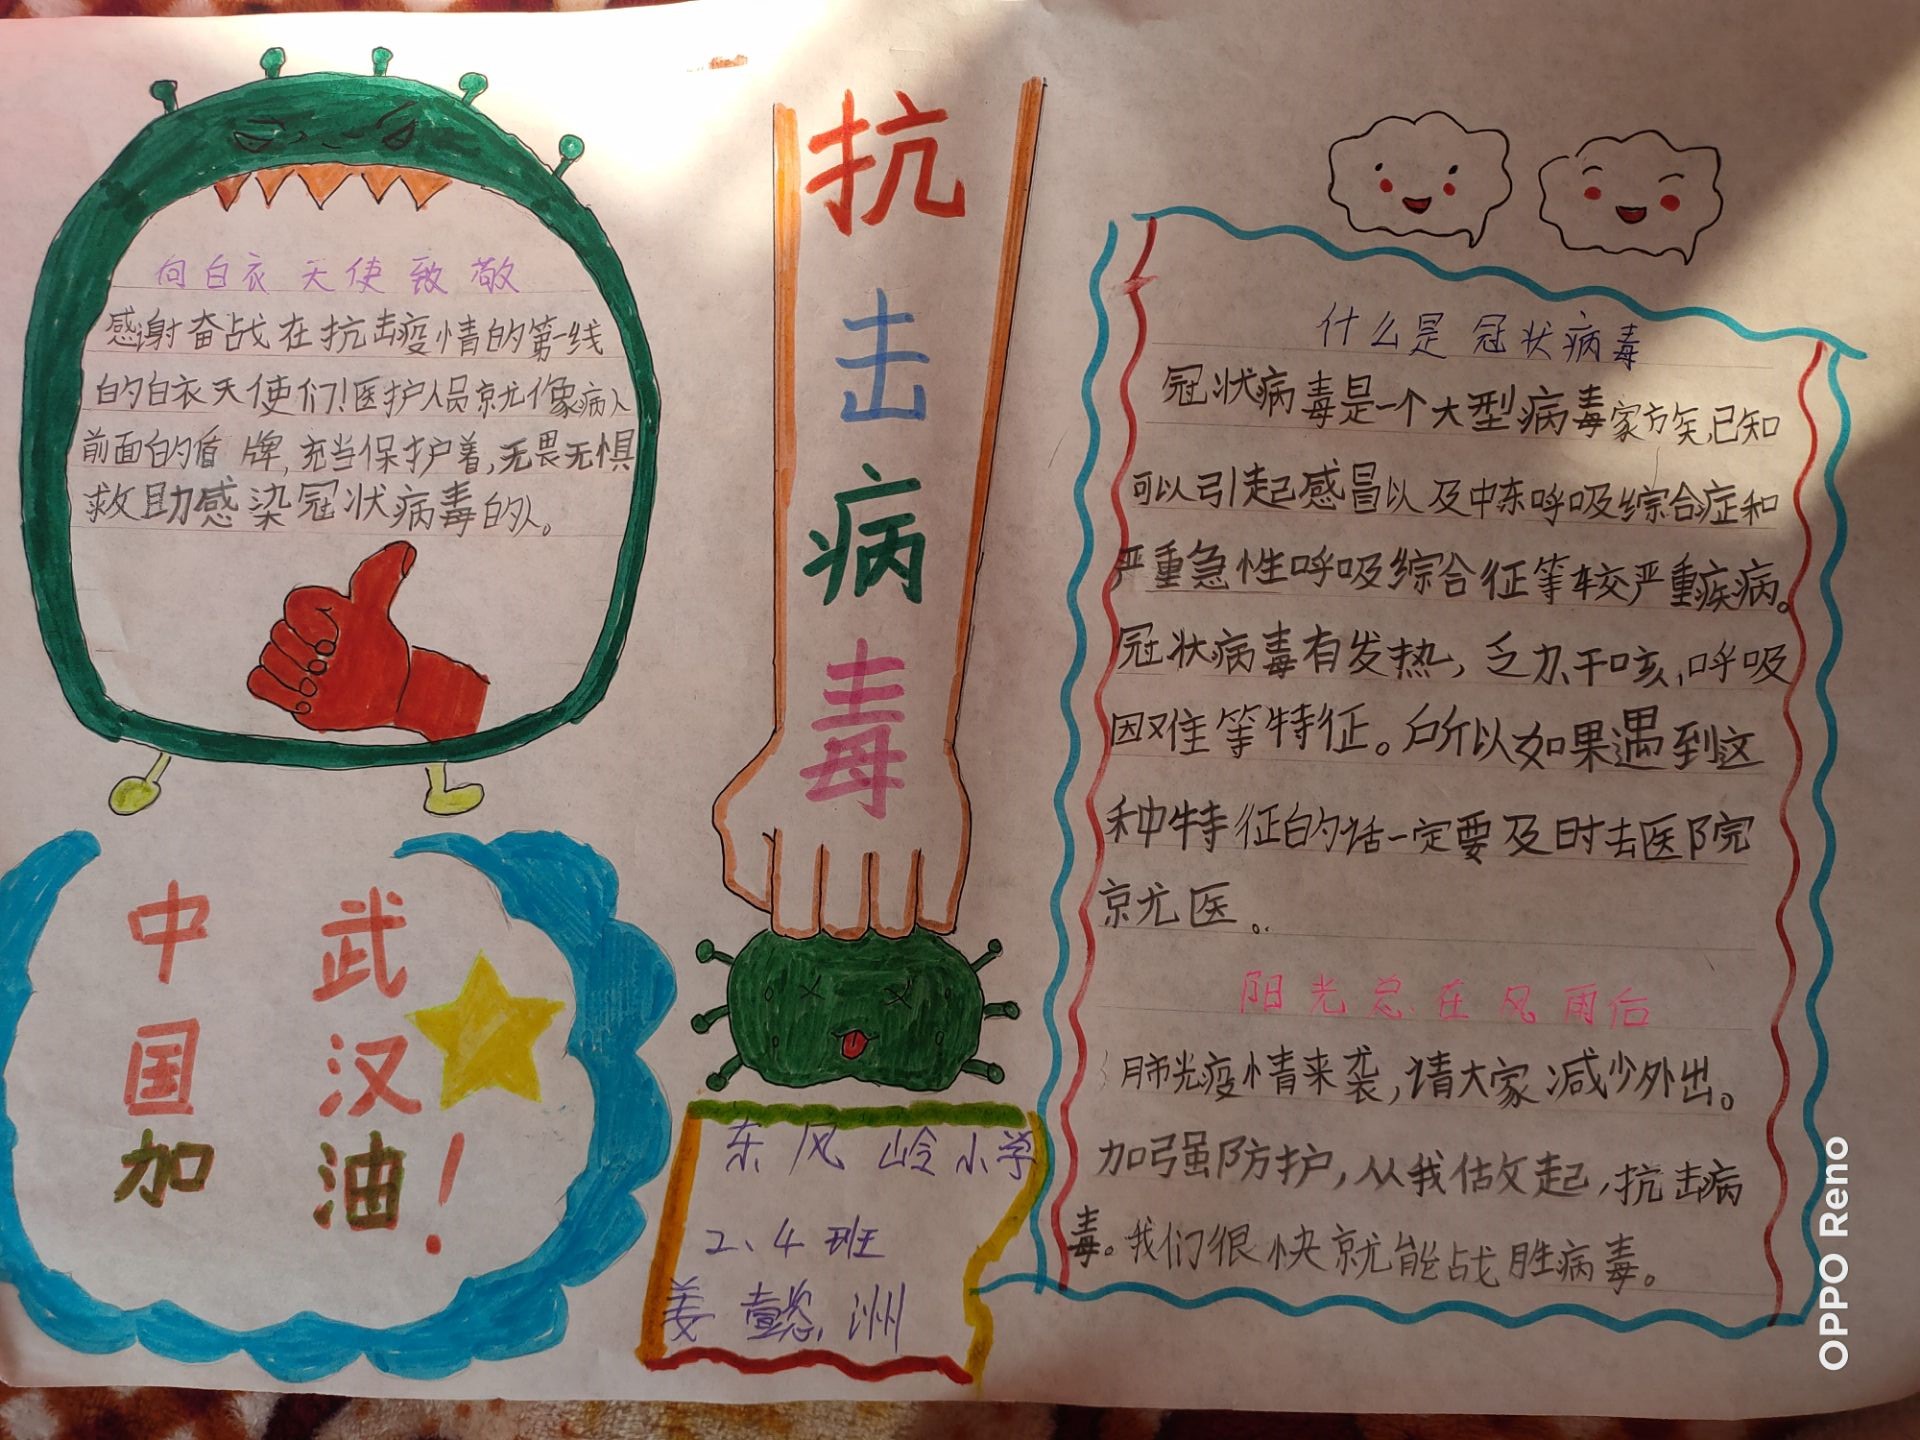 向白衣天使致敬
感谢奋战在抗击疫情的第一线
的白衣天使们!医护人员就像病人
前面的盾牌,充当保护着,无畏无惧
救助感染冠状病毒的人。
中国加
武汉油!
抗击病毒
东风岭小学
2、4班
姜懿洲
什么是冠状病毒
冠状病毒是一个大型病毒家族,已知
可以引起感冒以及中东呼吸综合症和
严重急性呼吸综合征等较严重疾病。
冠状病毒有发热,乏力,干咳,呼吸
因难等特征。所以如果遇到这
种特征的话一定要及时去医院
就医。
阳光总在风雨后
肺炎疫情来袭,请大家减少外出。
加强防护,从我做起,抗击病
毒。我们很快就能战胜病毒。
OPPO Reno